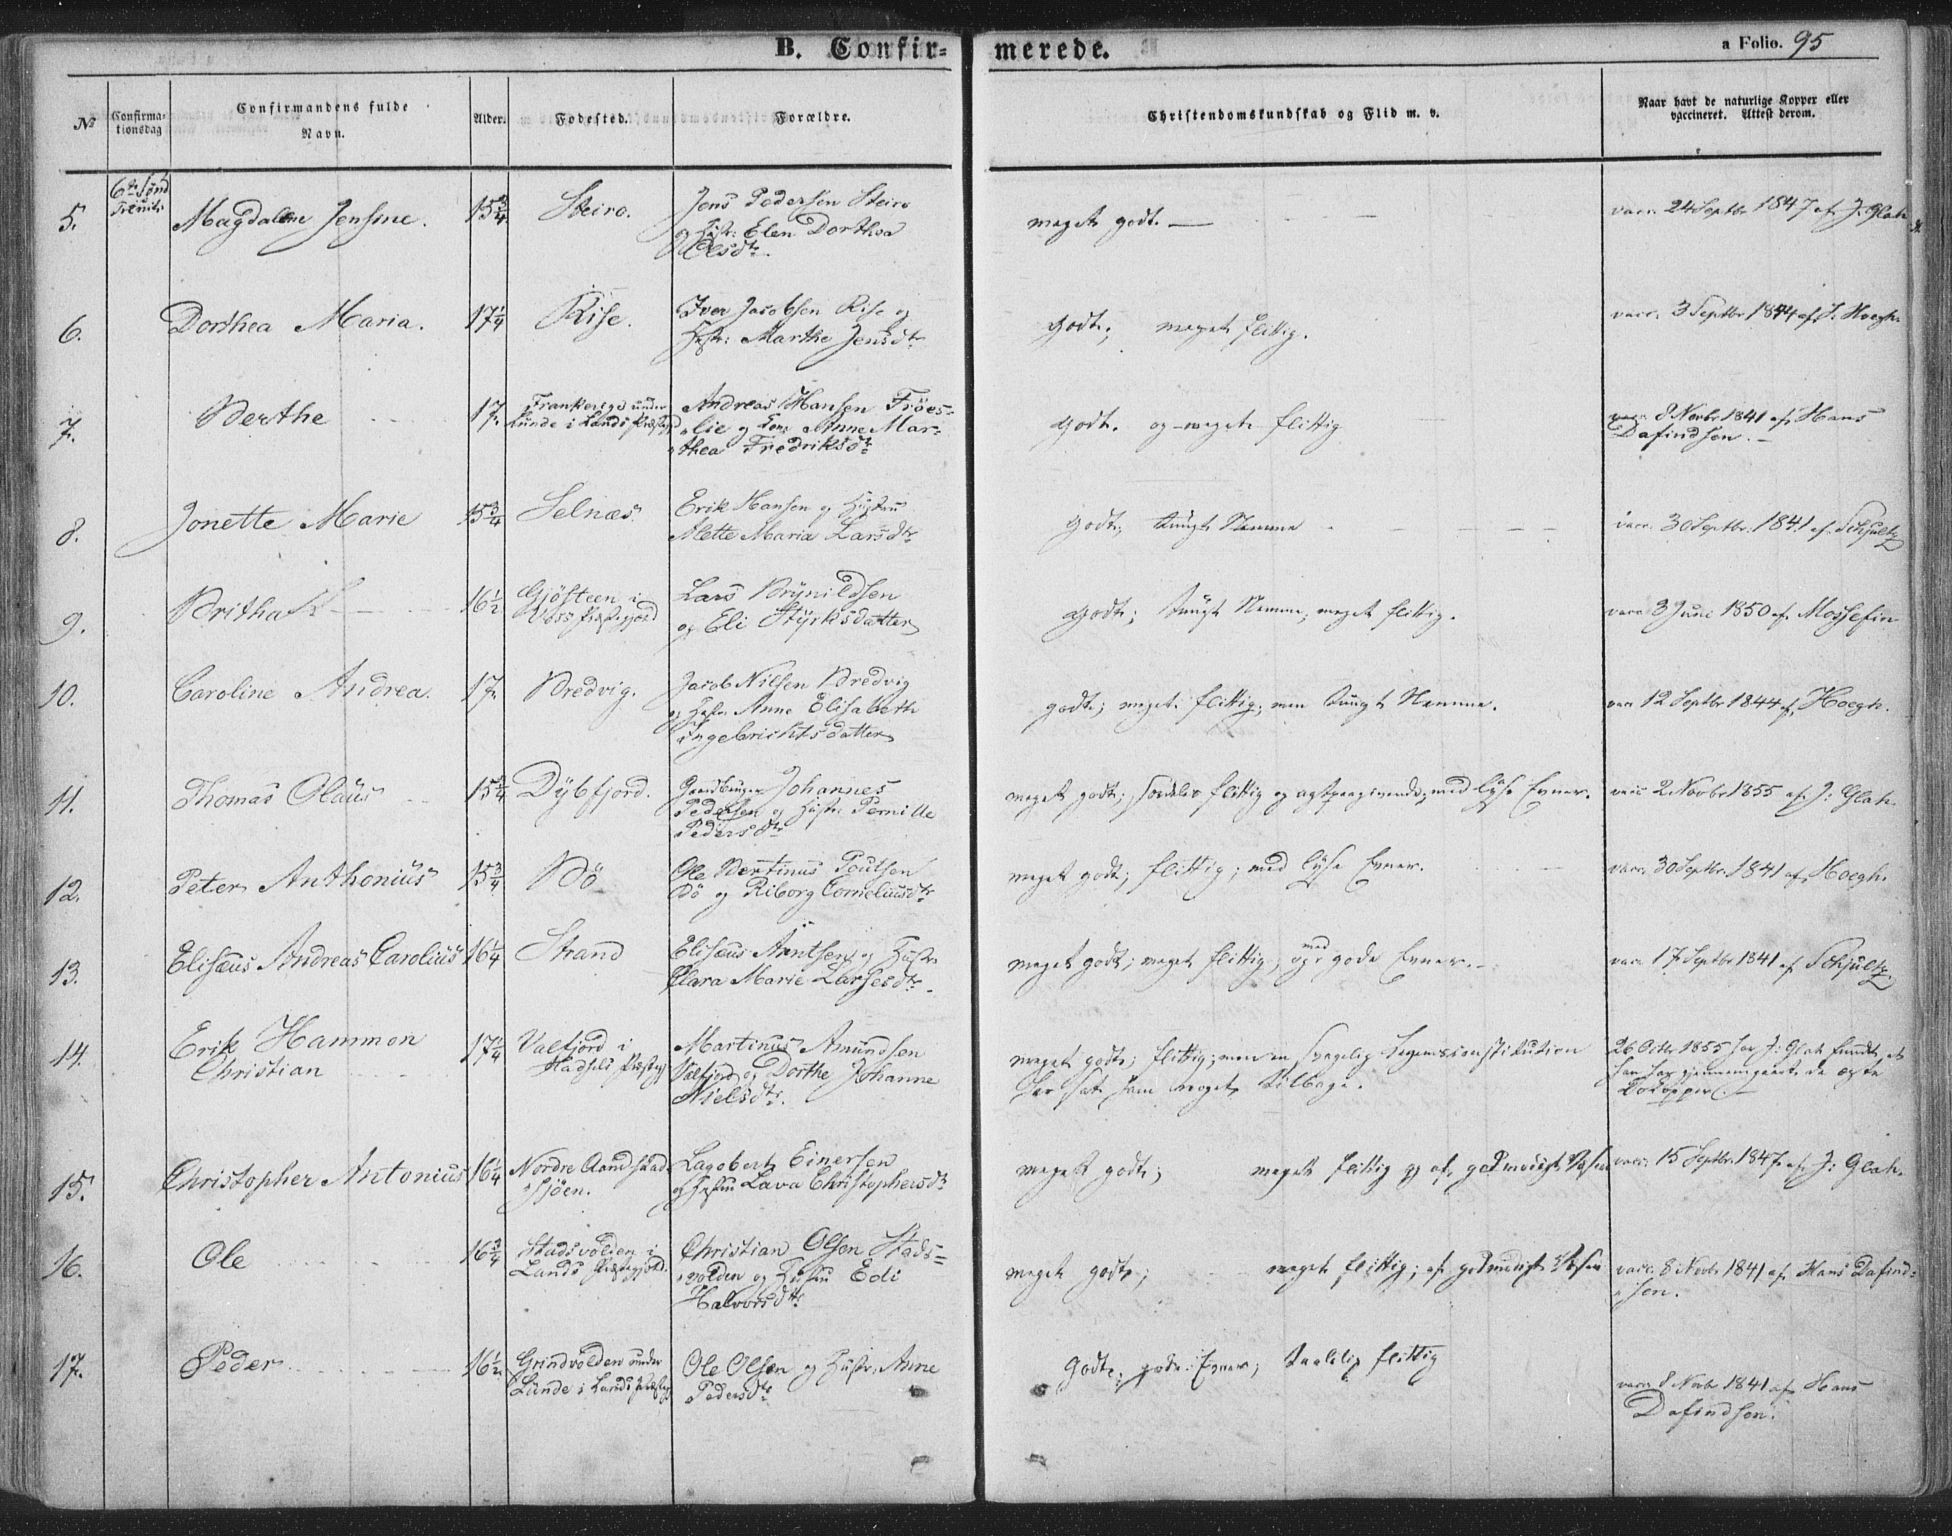 B. Confir= merede. a Folio. 95
№ Confirma-tionsdag Confirmandens fulde Navn. Alder. Fodested. Forældre. Christendomskundskab og Flid m. v. Naar havt de naturlige Kopper eller vaccineret. Attest derom.
5. 6te Sønd Trinit: Magdalene Jensine. 15¾ Steiro. Jens Pedersen Steiro
og Hstr: Elen Dorthea
Olsdtr.
meget godt. — vacc. 24 Septbr 1847 af J. Glah
6. Dorthea Maria. 17¼ Rise. Iver Jacobsen Rise og
Hstr: Marthe Jensdtr
godt; meget flittig. vacc. 3 Septbr 1844 af J. Hoegh.
7. Berthe 17. Frankerige under
Lunde i Lands Præstegjd
Andreas Hansen Fröes=
lie og Kone Anne Mar=
thea Fredriksdtr
godt. og meget flittig vacc. 8 Novbr 1841 af Hans
Dafindsen.
8. Jonette Marie 15¾ Selnæs. Erik Hansen og Hustru
Mette Maria Larsdtr
godt; tungt Nemme vacc. 30 Septbr. 1841 af Schjultz
9. Britha 16½ Gjösteen i
Voss Præstegjeld
Lars Brynildsen
og Eli Styrksdatter
godt; tungt Nemme, meget flittig. vacc 3 June 1850 af Mossefin
10. Caroline Andrea. 17. Bredvig. Jacob Nilsen Bredvig
og Hstr. Anne Elisabeth
Ingebrichtsdatter
godt; meget flittig; men tungt Nemme. vacc 12 Septbr 1844 af Hoegh.
11. Thomas Olaüs 15¾ Dybfjord. Gaardbruger Johannes
Pedersen og Hustr. Pernille
Pedersdtr
meget godt; særdeles flittig og agtpaagivende, med lyse Evner. vacc 2 Novbr 1855 af J: Glah.
12. Peter Anthonius 15¾ Bö Ole Bertinus Poulsen
Bö og Riborg Corneliusdtr
meget godt; flittig; med lyse Evner. vacc. 30 Septbr. 1841 af Hoegh.
13. Elisæus Andreas Carolius 16¼ Strand Elisæus Arntsen og Hustr.
Clara Marie Larsesdtr.
meget godt; meget flittig, og med gode Evner. vacc 17 Septbr 1841 af Schjultz
14. Erik Hammon
Christian
17¼ Valfjord i
Hadsels Præstegj
Martinus Amundsen
Valfjord og Dorthe Johanne
Nielsdtr.
meget godt; flittig; men en svagelig Legemsconstitution
har sat ham meget tilbage.
26 Octbr 1855 har J: Glah fundet, at
han har gjennemgaaet de ægte
Kokopper.
15. Christopher Antonius 16¼ Nordre Aandstad
sjöen.
Lagobert Einersen
og Hustru Lava Christophersdtr
meget godt; meget flittig og af godmodigt Væsen vacc. 15 Septbr. 1847 af J: Glah.
16. Ole 16¾ Stadsvolden i
Lands Præstegjeld.
Christian Olsen Stads=
volden og Hustru Edi
Halvorsdtr
meget godt; meget flittig; af godmodigt Væsen vacc. 8 Novbr 1841 af Hans Dafind=
sen.
17. Peder 16½ Grindvolden under
Lunde i Lands Præstegj
Ole Olsen og Hustr. Anne
Pedersdtr
Godt; gode Evner; taalelig flittig vacc 8 Novbr 1841 af Hans
Dafindsen.